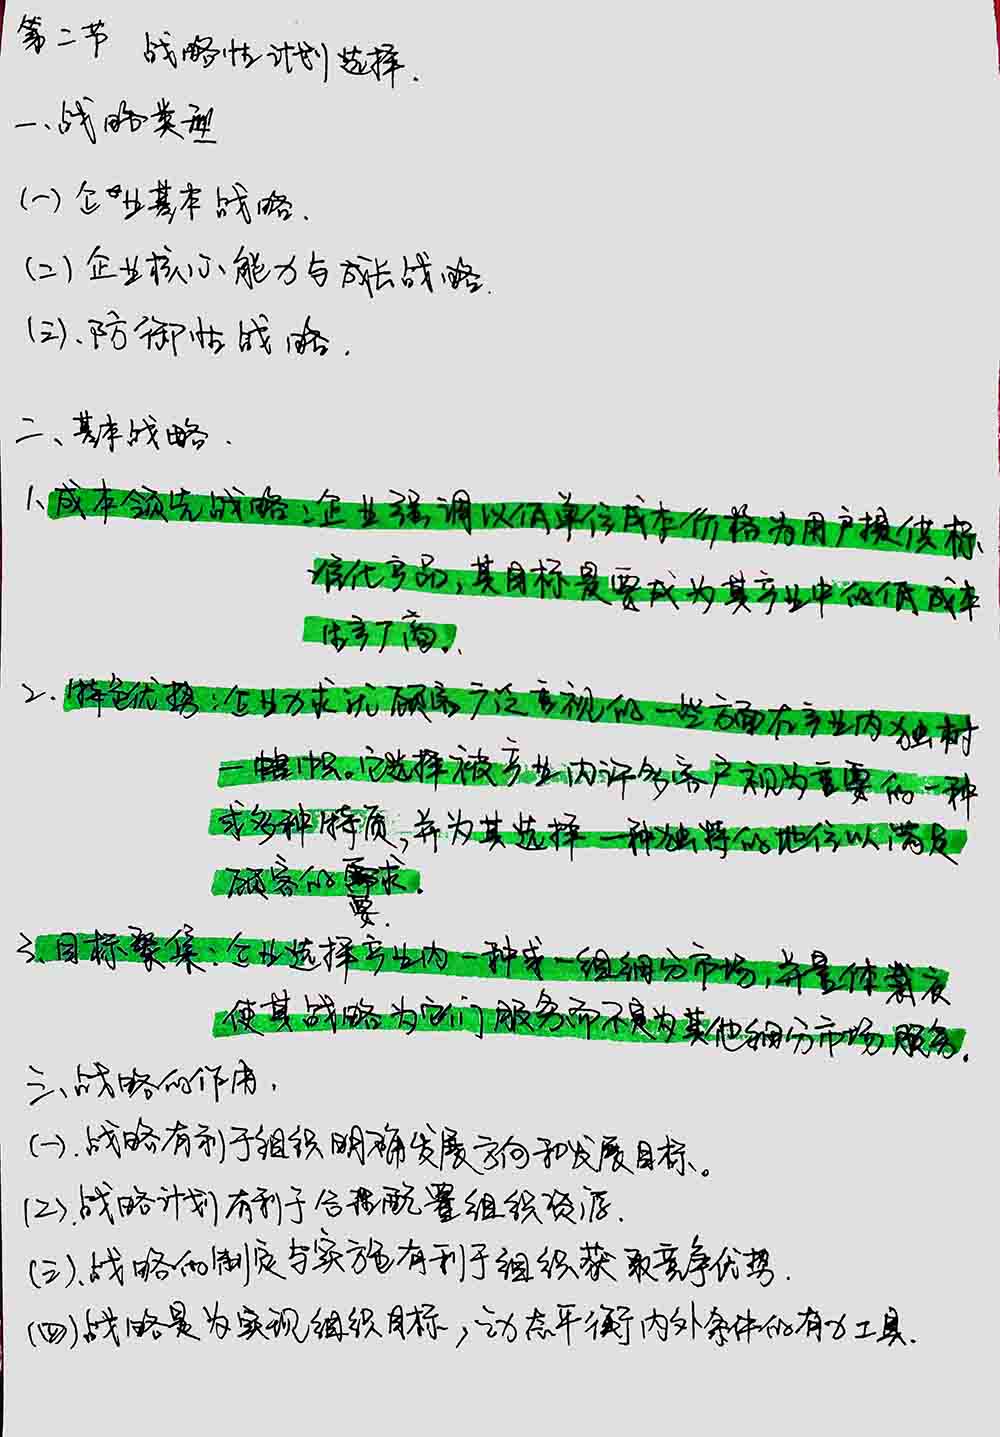 第二节 战略性计划选择.
一、战略类型
(一) 企业基本战略.
(二) 企业核心能力与成长战略.
(三).防御性战略.
二、基本战略.
1、成本领先战略:企业强调以低单位成本价格为用户提供标
准化产品,其目标是要成为其产业中的低成本
生产厂商.
2.特色优势:企业力求就顾客广泛重视的一些方面在产业内独树
一帜。它选择被产业内许多客户视为重要的一种
或多种特质,并为其选择一种独特的地位以满足
顾客的要求.
3.目标聚集:企业选择产业内一种或一组细分市场,并量体裁衣
使其战略为它们服务而不是为其他细分市场服务.
三、战略的作用.
(一).战略有利于组织明确发展方向和发展目标。
(二).战略计划有利于合理配置组织资源.
(三).战略的制定与实施有利于组织获取竞争优势.
(四)战略是为实现组织目标,动态平衡内外条件的有力工具.